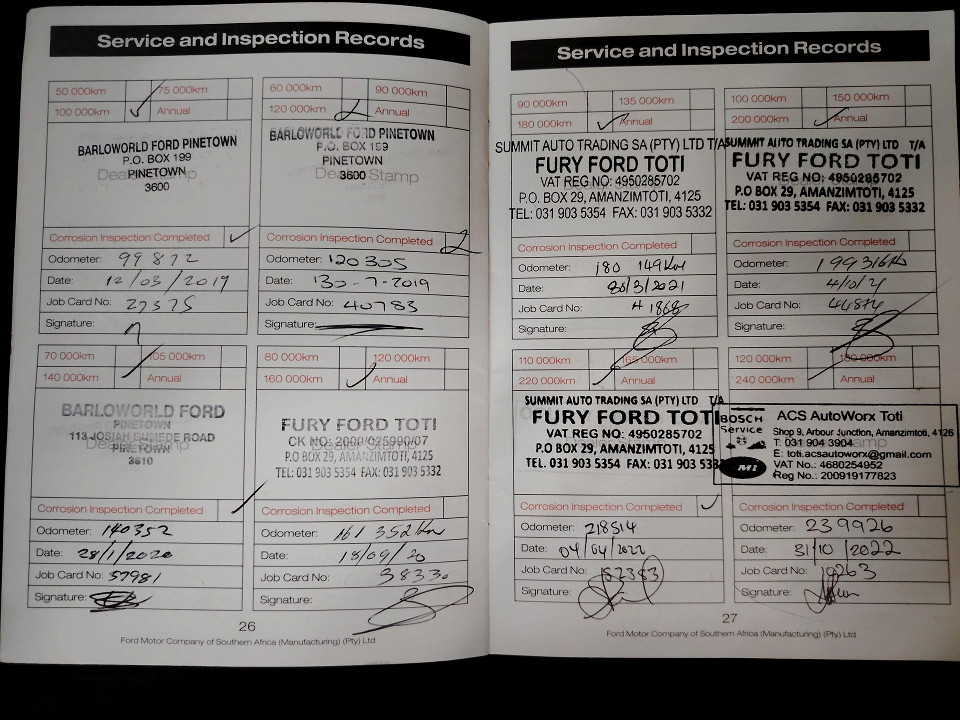 Service and Inspection Records
50 000km 75 000km
100 000km Annual
BARLOWORLD FORD PINETOWN
P.O. BOX 199
PINETOWN
Dealer Stamp
3600
Corrosion Inspection Completed
Odometer: 99872
Date: 12/03/2019
Job Card No: 27375
Signature:
60 000km 90 000km
120 000km Annual
BARLOWORLD FORD PINETOWN
P.O. BOX 199
PINETOWN
Dealer Stamp
3600
Corrosion Inspection Completed
Odometer: 120305
Date: 130-7-2019
Job Card No: 40783
Signature:
70 000km 105 000km
140 000km Annual
BARLOWORLD FORD
PINETOWN
113 JOSIAH GUMEDE ROAD
Dealer Stamp
PINETOWN
3610
Corrosion Inspection Completed
Odometer: 140352
Date: 28/1/2020
Job Card No: 57981
Signature:
80 000km 120 000km
160 000km Annual
FURY FORD TOTI
CK NO: 2000/025990/07
P.O BOX 29, AMANZIMTOTI, 4125
TEL: 031 903 5354 FAX: 031 903 5332
Corrosion Inspection Completed
Odometer: 161 352km
Date: 18/09/20
Job Card No: 38330
Signature:
26
Ford Motor Company of Southern Africa (Manufacturing) (Pty) Ltd
Service and Inspection Records
90 000km 135 000km
180 000km Annual
SUMMIT AUTO TRADING SA (PTY) LTD T/A
FURY FORD TOTI
VAT REG NO: 4950285702
P.O. BOX 29, AMANZIMTOTI, 4125
TEL: 031 903 5354 FAX: 031 903 5332
Corrosion Inspection Completed
Odometer: 180 149km
Date: 30/3/2021
Job Card No: 41868
Signature:
100 000km 150 000km
200 000km Annual
SUMMIT AUTO TRADING SA (PTY) LTD T/A
FURY FORD TOTI
VAT REG NO: 4950285702
P.O BOX 29, AMANZIMTOTI, 4125
TEL: 031 903 5354 FAX: 031 903 5332
Corrosion Inspection Completed
Odometer: 199316km
Date: 4/10/21
Job Card No: 44874
Signature:
110 000km 165 000km
220 000km Annual
SUMMIT AUTO TRADING SA (PTY) LTD T/A
FURY FORD TOTI
VAT REG NO: 4950285702
P.O BOX 29, AMANZIMTOTI, 4125
TEL: 031 903 5354 FAX: 031 903 533
Corrosion Inspection Completed
Odometer: 218514
Date: 04/04/2022
Job Card No: 152383
Signature:
120 000km 180 000km
240 000km Annual
BOSCH
Service
ACS AutoWorx Toti
Shop 9, Arbour Junction, Amanzimtoti, 4126
T: 031 904 3904
E: toti.acsautoworx@gmail.com
VAT No.: 4680254952
Reg No.: 200919177823
Corrosion Inspection Completed
Odometer: 239926
Date: 31/10/2022
Job Card No: 19263
Signature:
27
Ford Motor Company of Southern Africa (Manufacturing) (Pty) Ltd